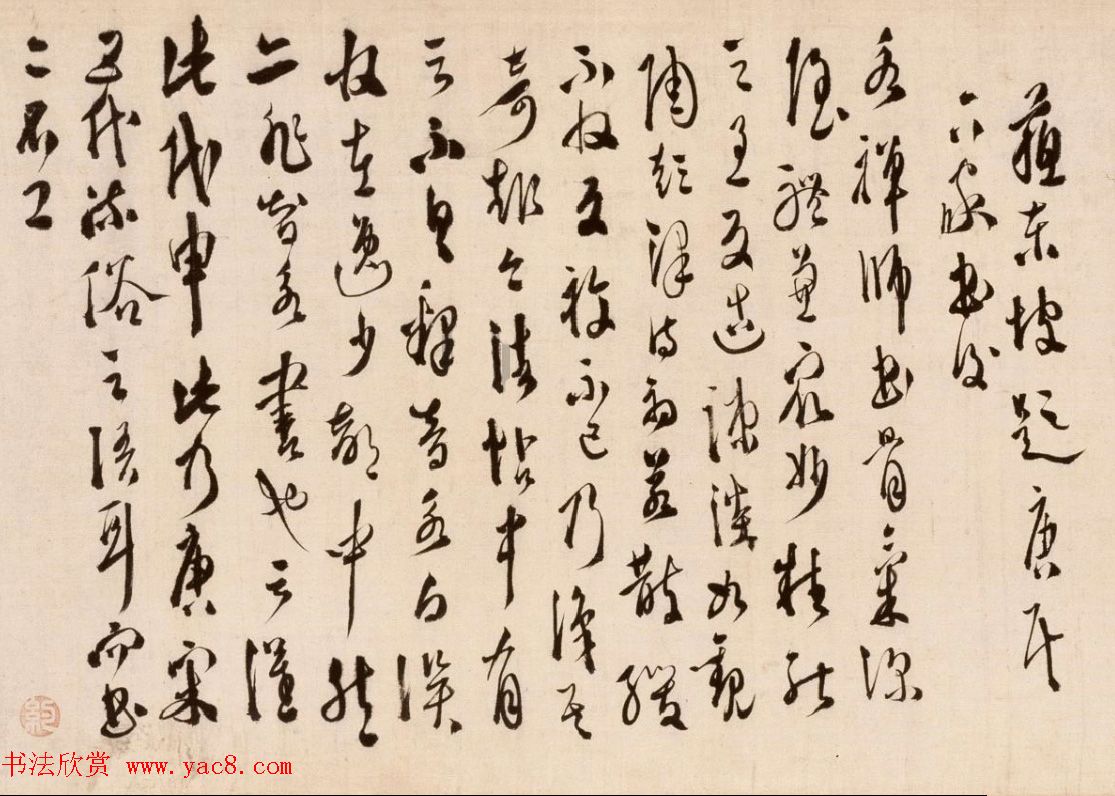 蘇東坡題唐氏
六家書後
永禪師書骨氣深
穩體兼眾妙精能
之至反造疎淡如觀
陶彭澤詩初若散緩
不收反覆不已乃識其
奇趣今法帖中有
云不具釋智永白誤
收在逸少部中然
亦非智永書也云謹
此代申此乃唐
五代流俗之語耳而書
亦不工
书法欣赏 www.yac8.com